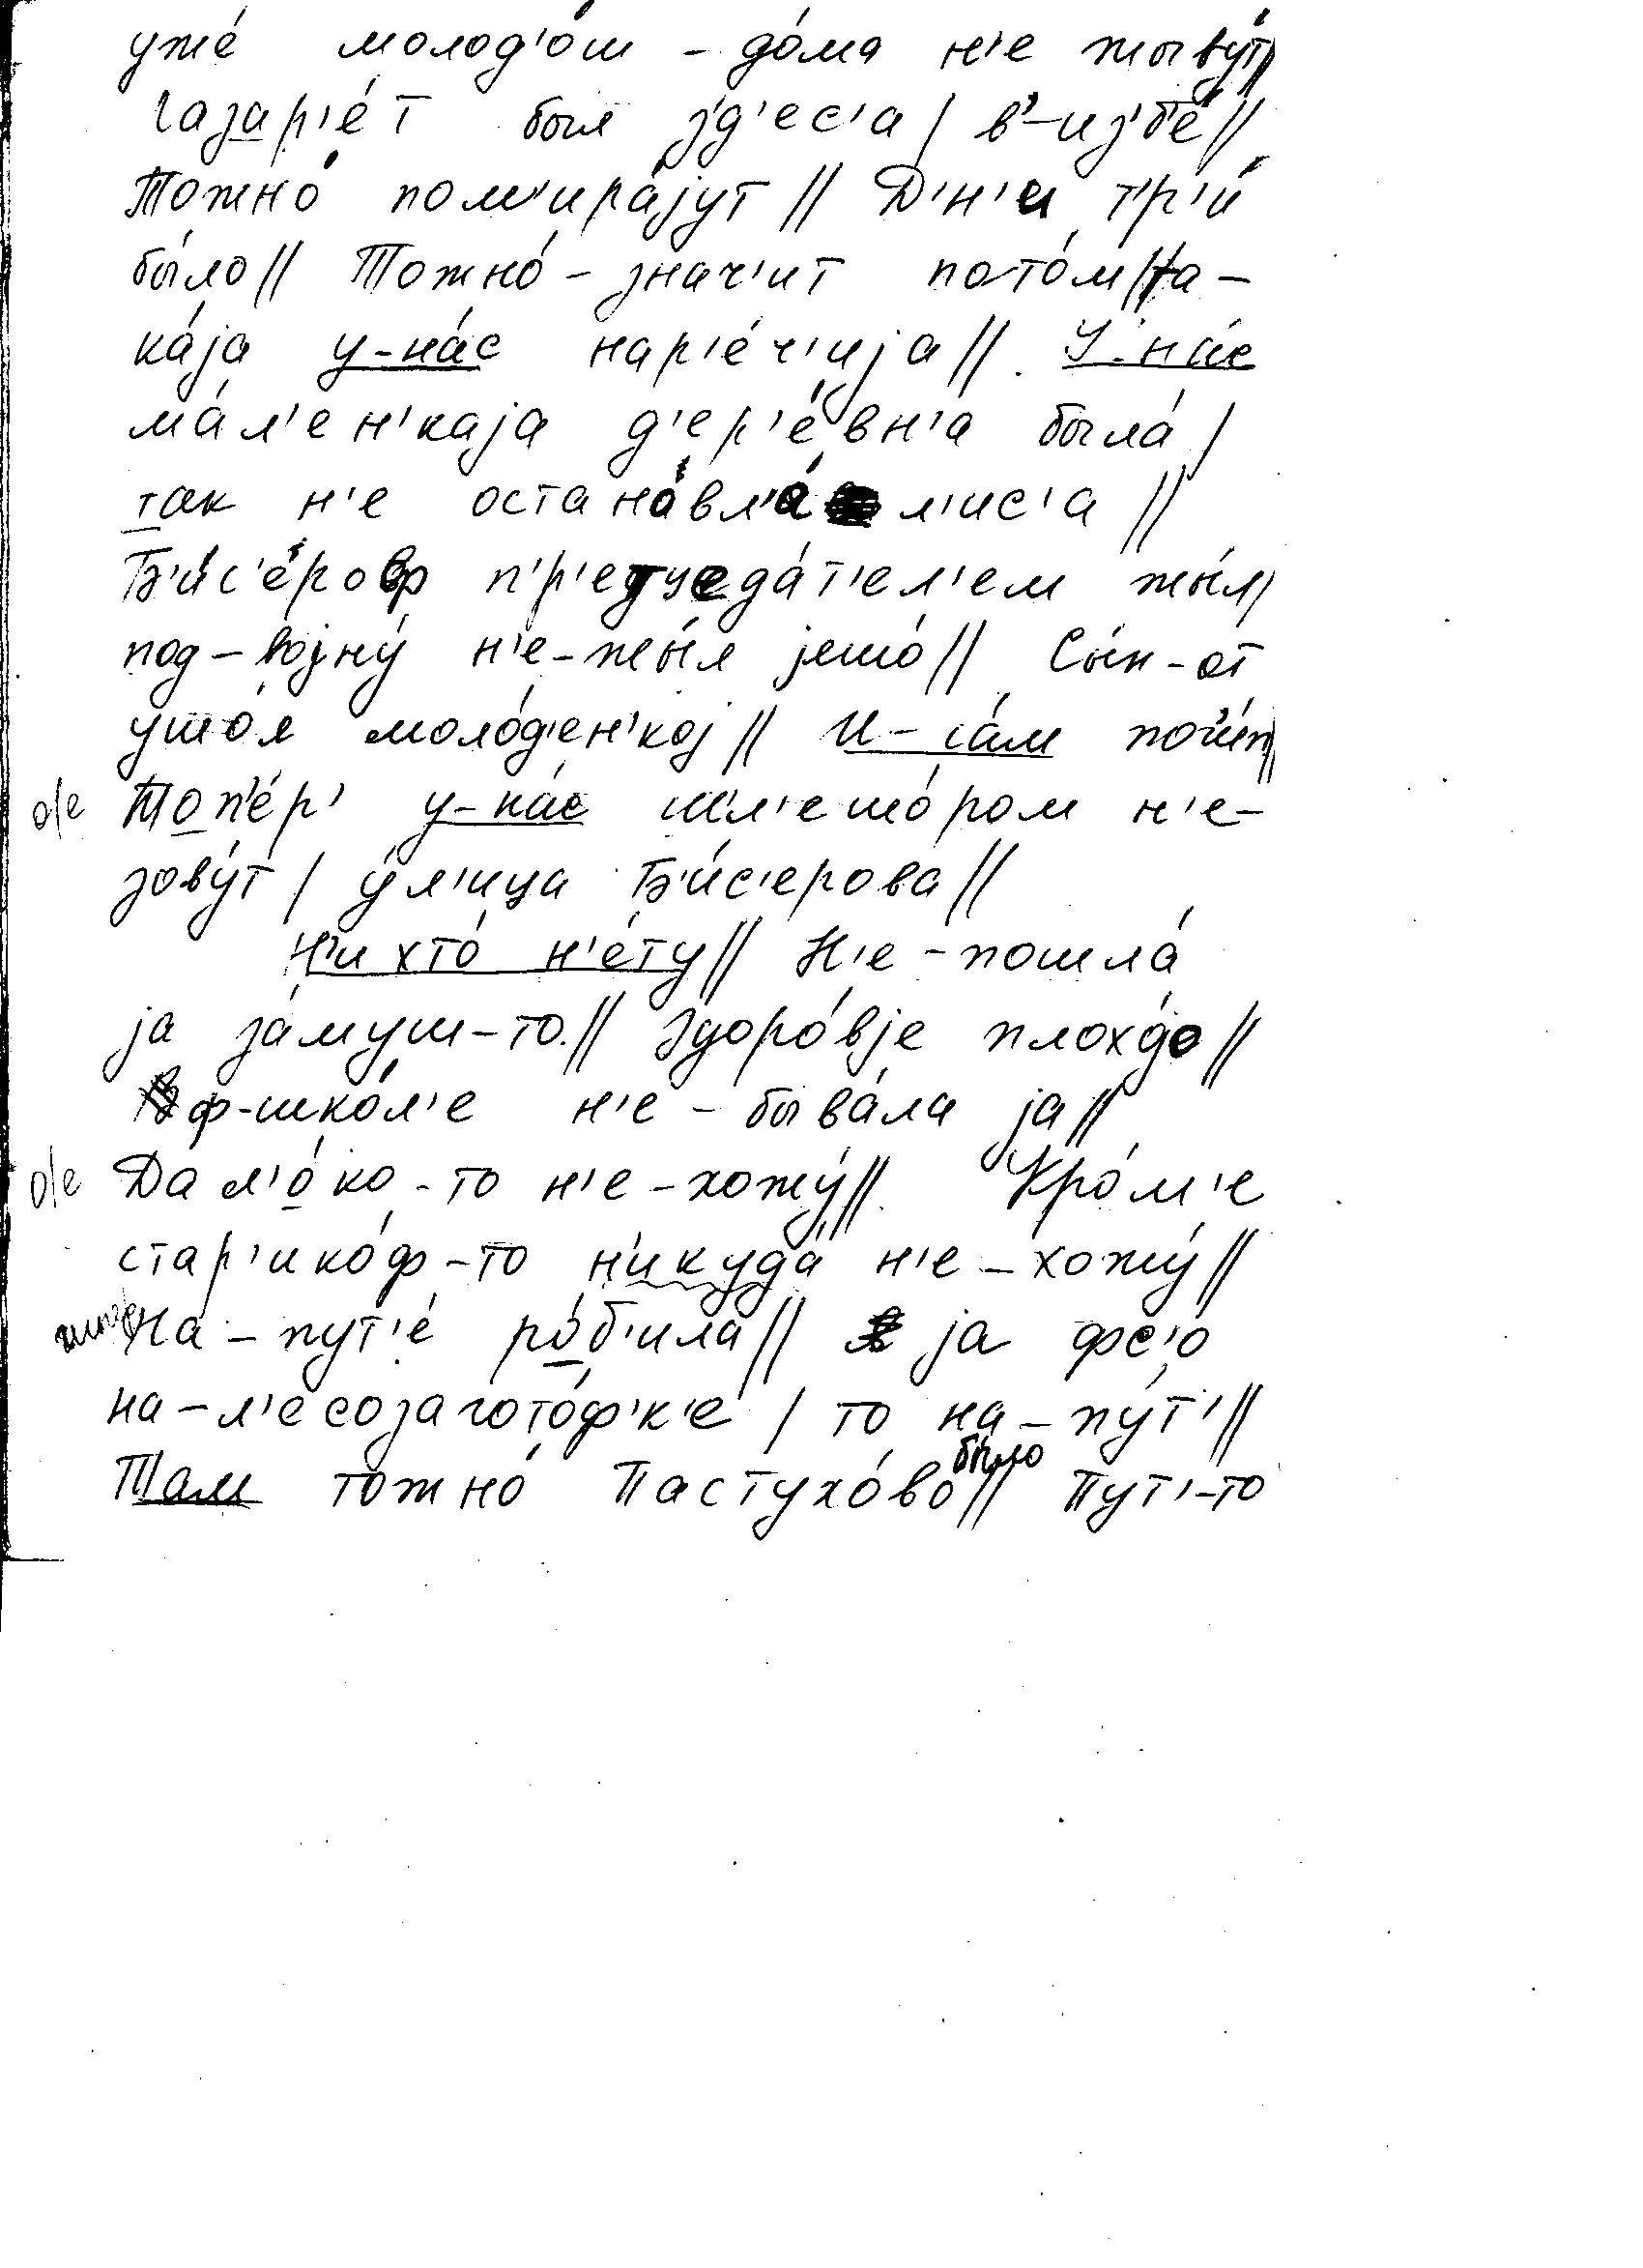 уже́ молод'о́ш - до́ма н'е жыву́т//
газар'е́т был з'д'ес'а / в'-из'б'е́//
Тожно́ пом'ира́jут // Д'н'и т'р'и́
бы́ло// Тожно́ - знач'ит пото́м//та-
ка́jа у-на́с нар'е́ч'иjа// У-на́с
ма́л'ен'каjа д'ер'е́вн'а была́ /
так н'е остана́вл'а л'ис'а //
Б'и́с'еров п'р'етседа́т'ел'ем жы́л/
под-воjну́ н'е-жы́л jешо́// Сы́н-от
ушо́л моло́д'ен'коj// И-са́м пог'и́п//
о/е Топ'е́р' у-на́с Шл'ешо́ром н'е-
зову́т / у́л'ица Б'и́с'ерова//
Н'и хто́ н'е́ту// Н'е-пошла́
jа за́муш-то// Здоро́вjе плохо́//
ф-шко́л'е н'е-быва́ла jа//
о/е Дал'о́ко-то н'е-хожу́// Кро́м'е
стар'ико́ф-то н'икуда́ н'е-хожу́//
На-пут'е́ ро́б'ила// jа фс'о
на-л'есозагото́ф'к'е / то на-пу́т'//
Там тожно́ Пастухо́во было// Пут'-то